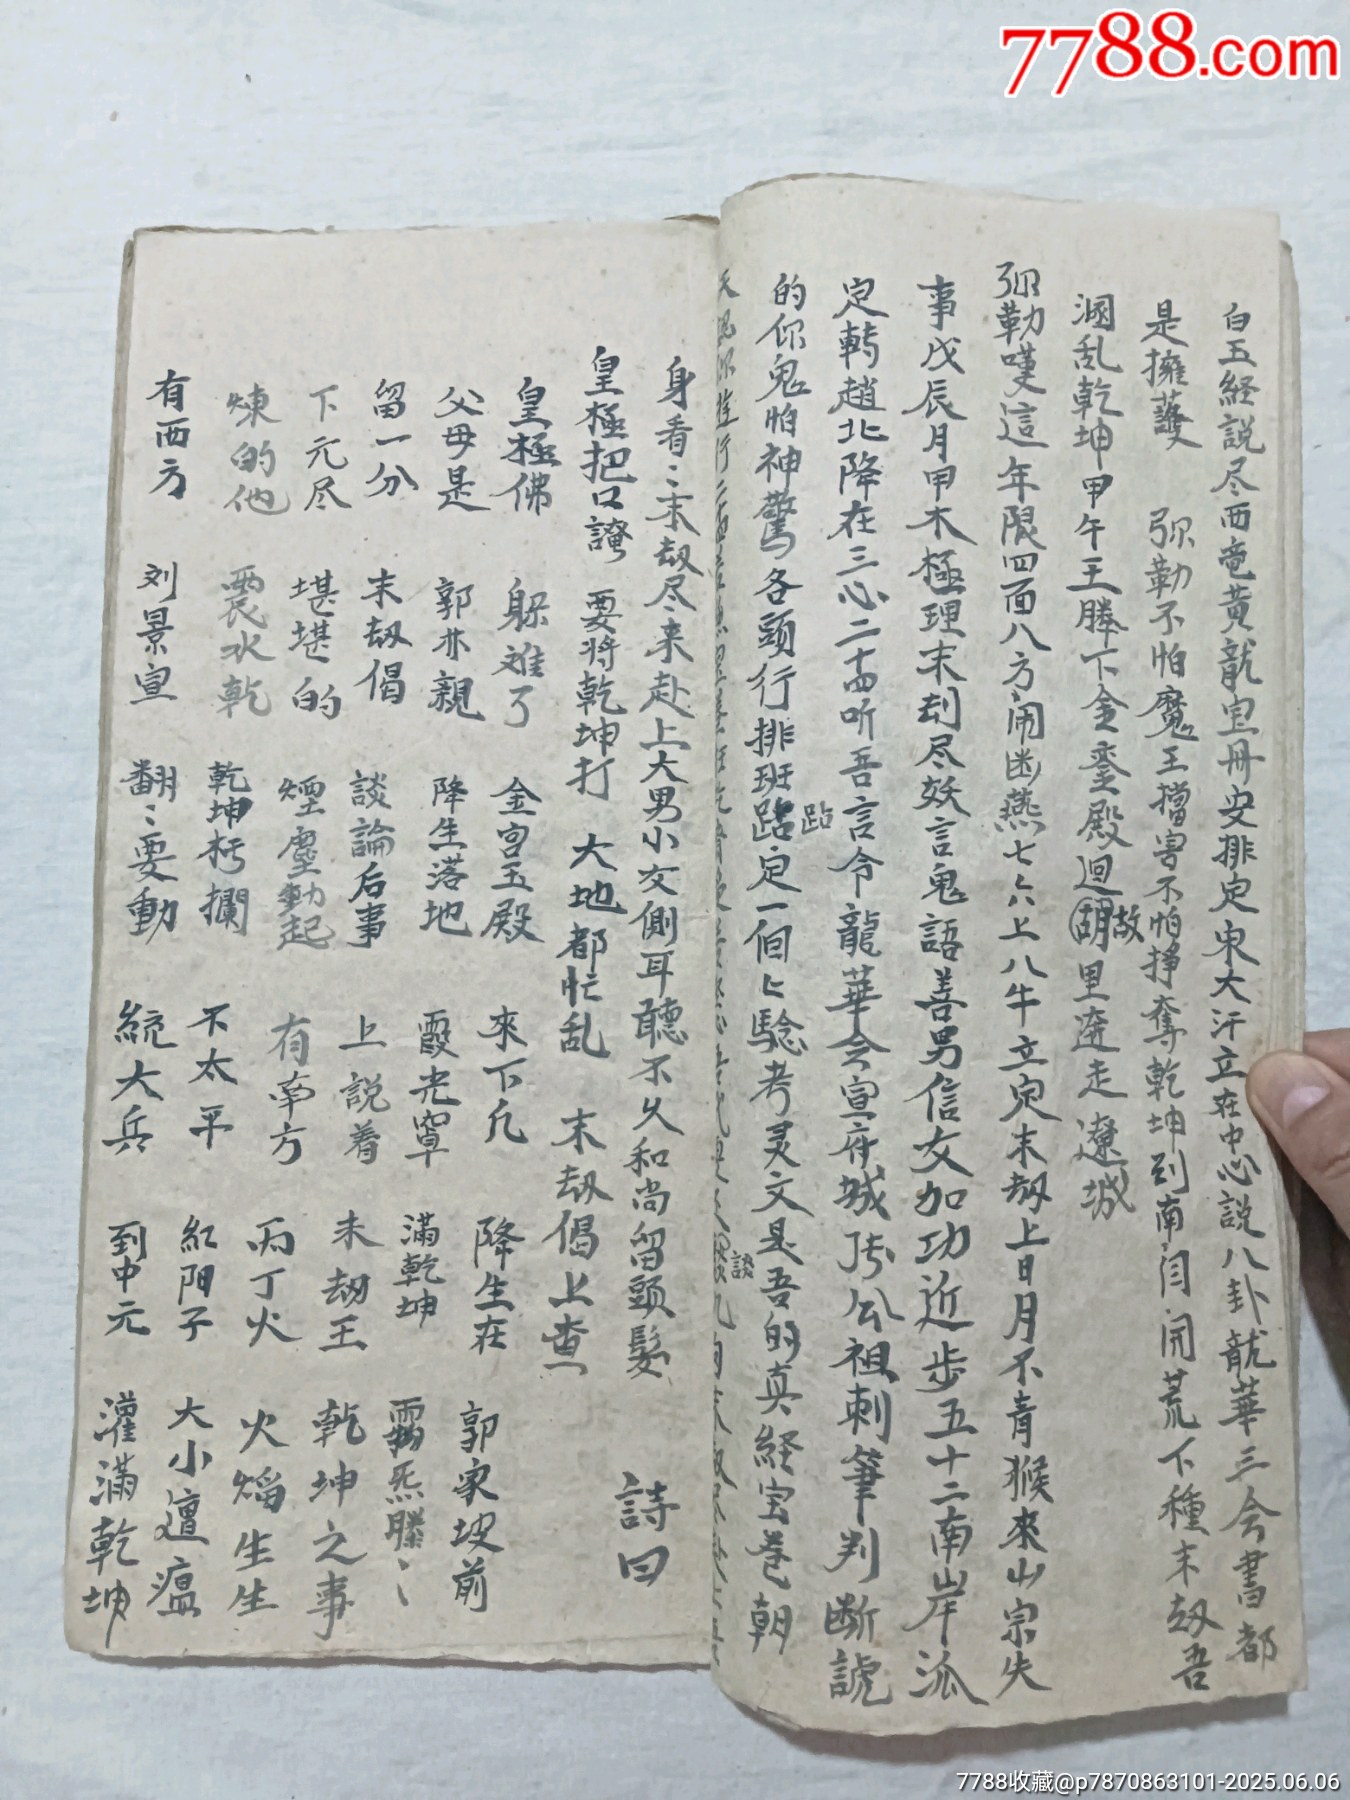 7788.com
白玉経說尽西竜黄龍宝册安排定東大汗立在中心說八卦龍華三会書都
是擁護 弥勒不怕魔王擋害不怕挣奪乾坤到南阎闲荒下種末劫吾
溷乱乾坤甲午王滕下金銮殿迴胡故里遊走遼城
弥勒嘆這年限四面八方闹幽燕七六上八牛立定末劫上日月不青猴來山宗失
事戊辰月甲木極理末刦尽妖言鬼語善男信女加功近步五十二南岸派
定轉趙北降在三心二十四听吾言令龍華会宣府城張公祖刺筆判断號
的你鬼怕神驚各頭行排班跕跕定一個上驗考灵文是吾的真経宝卷朝
談
身看〻末劫尽来赴上大男小女側耳聽不久和尚留頭髪
皇極把口誇 要將乾坤打 大地都忙乱 末劫偈上查 詩曰
皇極佛 躲难了 金宮玉殿 來下凡 降生在 郭家坡前
父母是 郭亦親 降生落地 霞光罩 滿乾坤 霧炁騰〻
留一分 末劫偈 談論后事 上説着 末劫王 乾坤之事
下元尽 堪堪的 煙塵動起 有南方 丙丁火 火焰生生
煉的他 衆水乾 乾坤朽攔 不太平 紅阳子 大小遭瘟
有西方 刘景宣 翻〻要動 統大兵 到中元 灌滿乾坤
7788收藏@p7870863101-2025.06.06